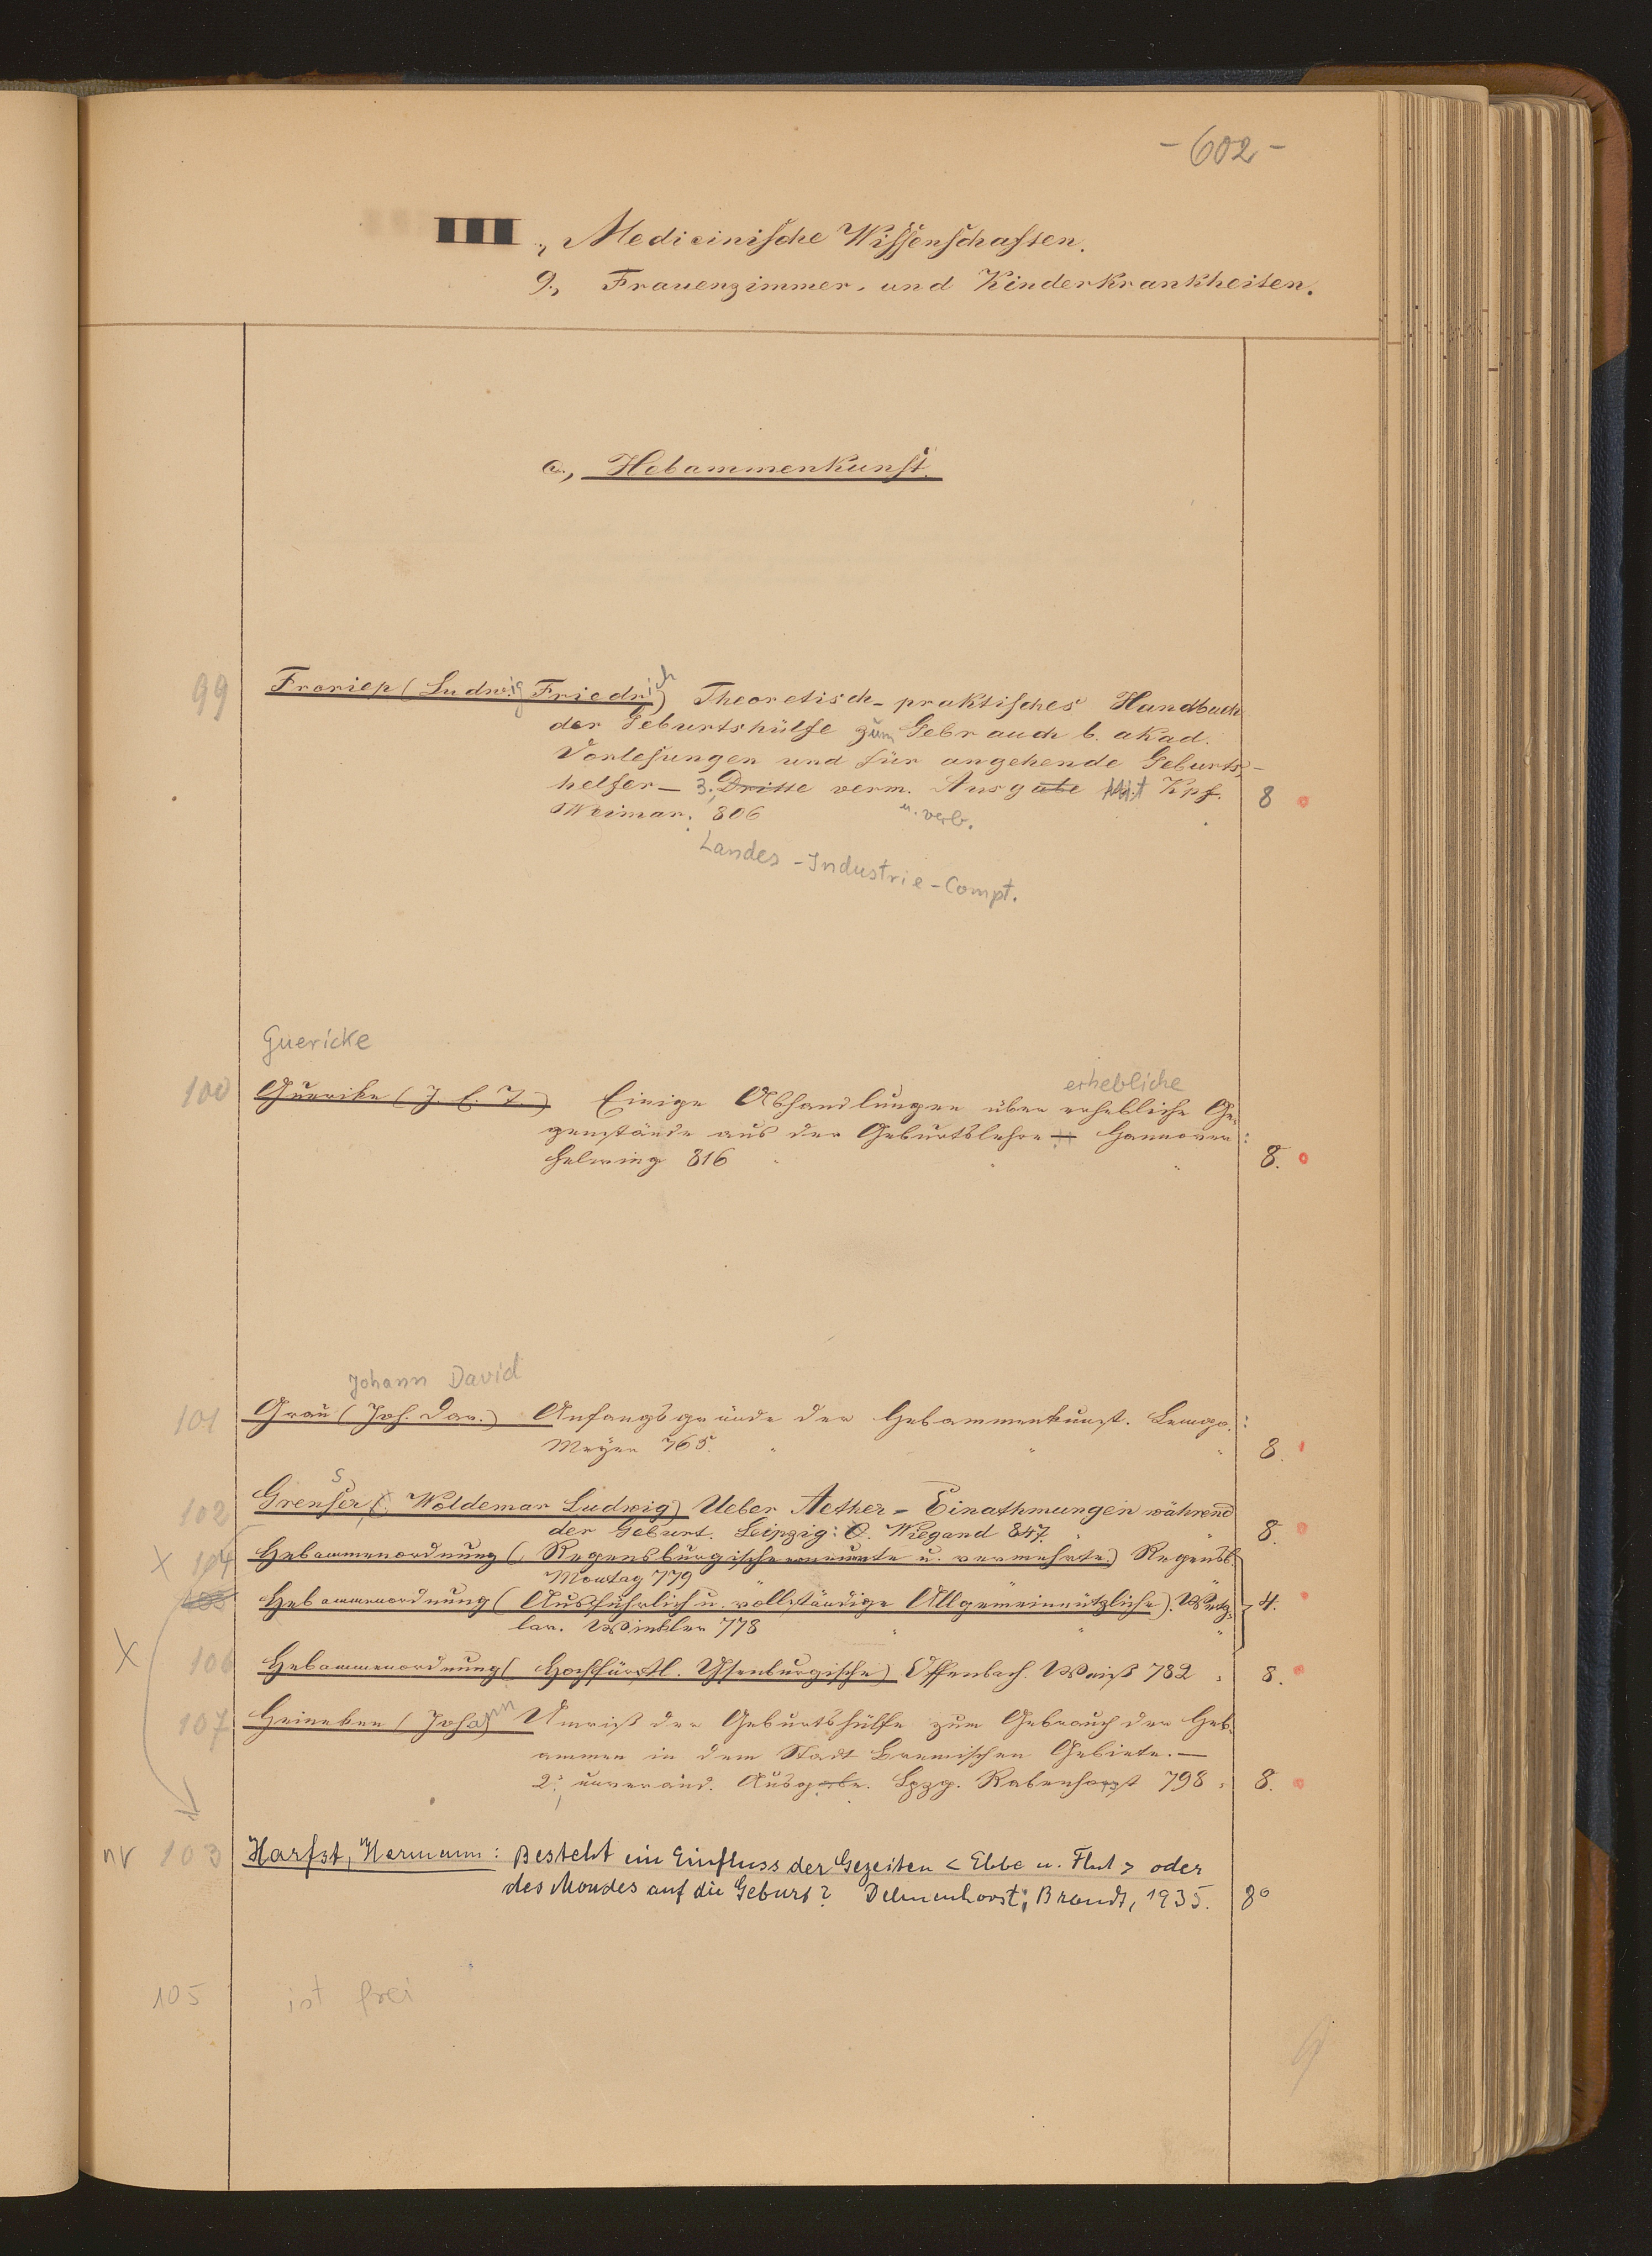 - 602 -
III., Medicinische Wissenschaften.
9., Frauenzimmer- und Kinderkrankheiten.
a., Hebammenkunst.
99 Froriep (Ludwig Friedrich) Theoretisch-praktisches Handbuch
der Geburtshülfe zum Gebrauch b. akad.
Vorlesungen und für angehende Geburts-
helfer – 3., Dritte verm. Ausgabe Mit Kpf. 8
Weimar. 806 u. verb.
Landes-Industrie-Compt.
Guericke
erhebliche
100 Guerike (J. C. F.) Einige Abhandlungen über erhebliche Ge-
genstände aus der Geburtslehre – Hannover:
Helwing 816 8.
Johann David
101 Grau (Joh. Dav.) Anfangsgründe der Hebammenkunst. Lemgo:
Meyer 765. 8.
s
102 Grenser (Woldemar Ludwig) Ueber Aether-Einathmungen während
der Geburt. Leipzig: O. Wiegand 847. 8.
x 104 Hebammenordnung (Regensburgische erneuerte u. vermehrte) Regensb.
Montag 779
105 Hebammenordnung (Ausführlich u. vollständige Allgemeinnützliche). Wetz- 4.
lar. Winkler 778
x 106 Hebammenordnung (Hochfürstl. Ysenburgische) Offenbach. Weiß 782 8.
107 Heineken (Johann Umriß der Geburtshülfe zum Gebrauch der Heb-
ammen in dem Stadt Bremischen Gebiete. –
2., unveränd. Ausgabe. Lpzg. Rabenhorst 798 8.
nr 103 Harfst, Hermann: Besteht ein Einfluss der Gezeiten < Ebbe u. Flut > oder
des Mondes auf die Geburt? Delmenhorst: Brandt, 1935. 8°
105 ist frei